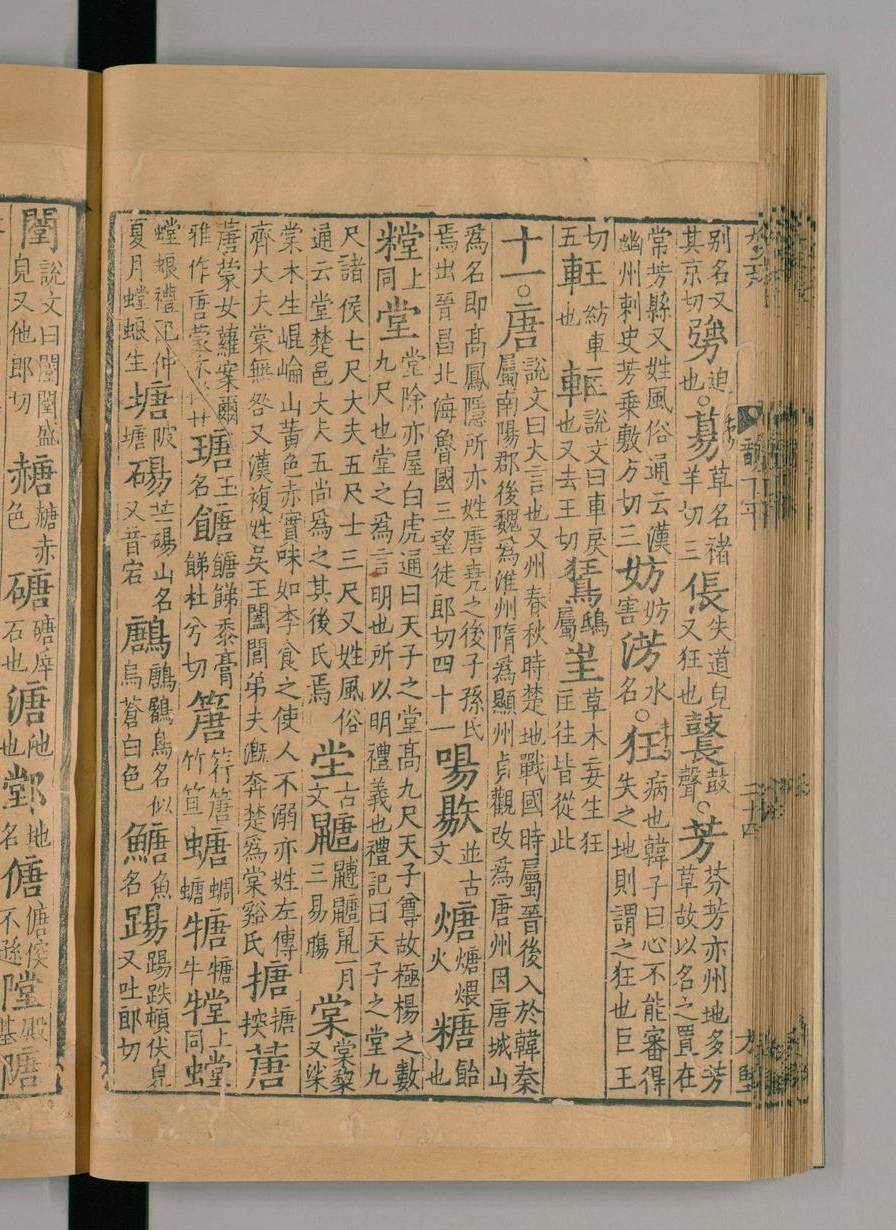 别名又其京切勥迫也。草名褚羊切三倀失道皃又狂也鼚鼓聲。芳芬芳亦州地多芳草故以名之置在
常芳縣又姓風俗通云漢幽州刺史芳乘敷方切三妨妨害淓水名。狂病也韓子曰心不能審得失之地則謂之狂也巨王
切五軖紡車也軭說文曰車戾也又去王切鵟鴟屬㞷草木妄生狂匡往皆從此
十一。唐說文曰大言也又州春秋時楚地戰國時屬晉後入於韓秦屬南陽郡後魏爲淮州隋爲顯州貞觀改爲唐州因唐城山
爲名即高鳳隱所亦姓唐堯之後子孫氏焉出晉昌北海魯國三望徒郎切四十一啺並古文煻煻煨火糖飴也
糛上同堂堂除亦屋白虎通曰天子之堂高九尺天子尊故極楊之數九尺也堂之爲言明也所以明禮義也禮記曰天子之堂九
尺諸侯七尺大夫五尺士三尺又姓風俗通云堂楚邑大夫五尚爲之其後氏焉坣古文鼠一月三易腸棠棠棃又
棠木生崐崘山黄色赤實味如李食之使人不溺亦姓左傳齊大夫棠無咎又漢複姓吳王闔閭弟夫溉奔楚爲棠谿氏搪搪揬蓎
蓎蒙女蘿案爾雅作唐蒙瑭玉名餹餹䬾黍膏䬾杜兮切䉎䉎竹笪螗蜩螗㹔㹔牛上同螳
螳蜋禮記仲夏月螳蜋生塘陂塘碭芒碭山名又音宕鶶鶶鷵鳥名似烏蒼白色鎕魚名踼踼跌頓伏皃又吐郎切
闛說文曰闛闛盛皃又他郎切赯赤色磄石也溏池也鄌地名傏傏㑮不遜隚殿基